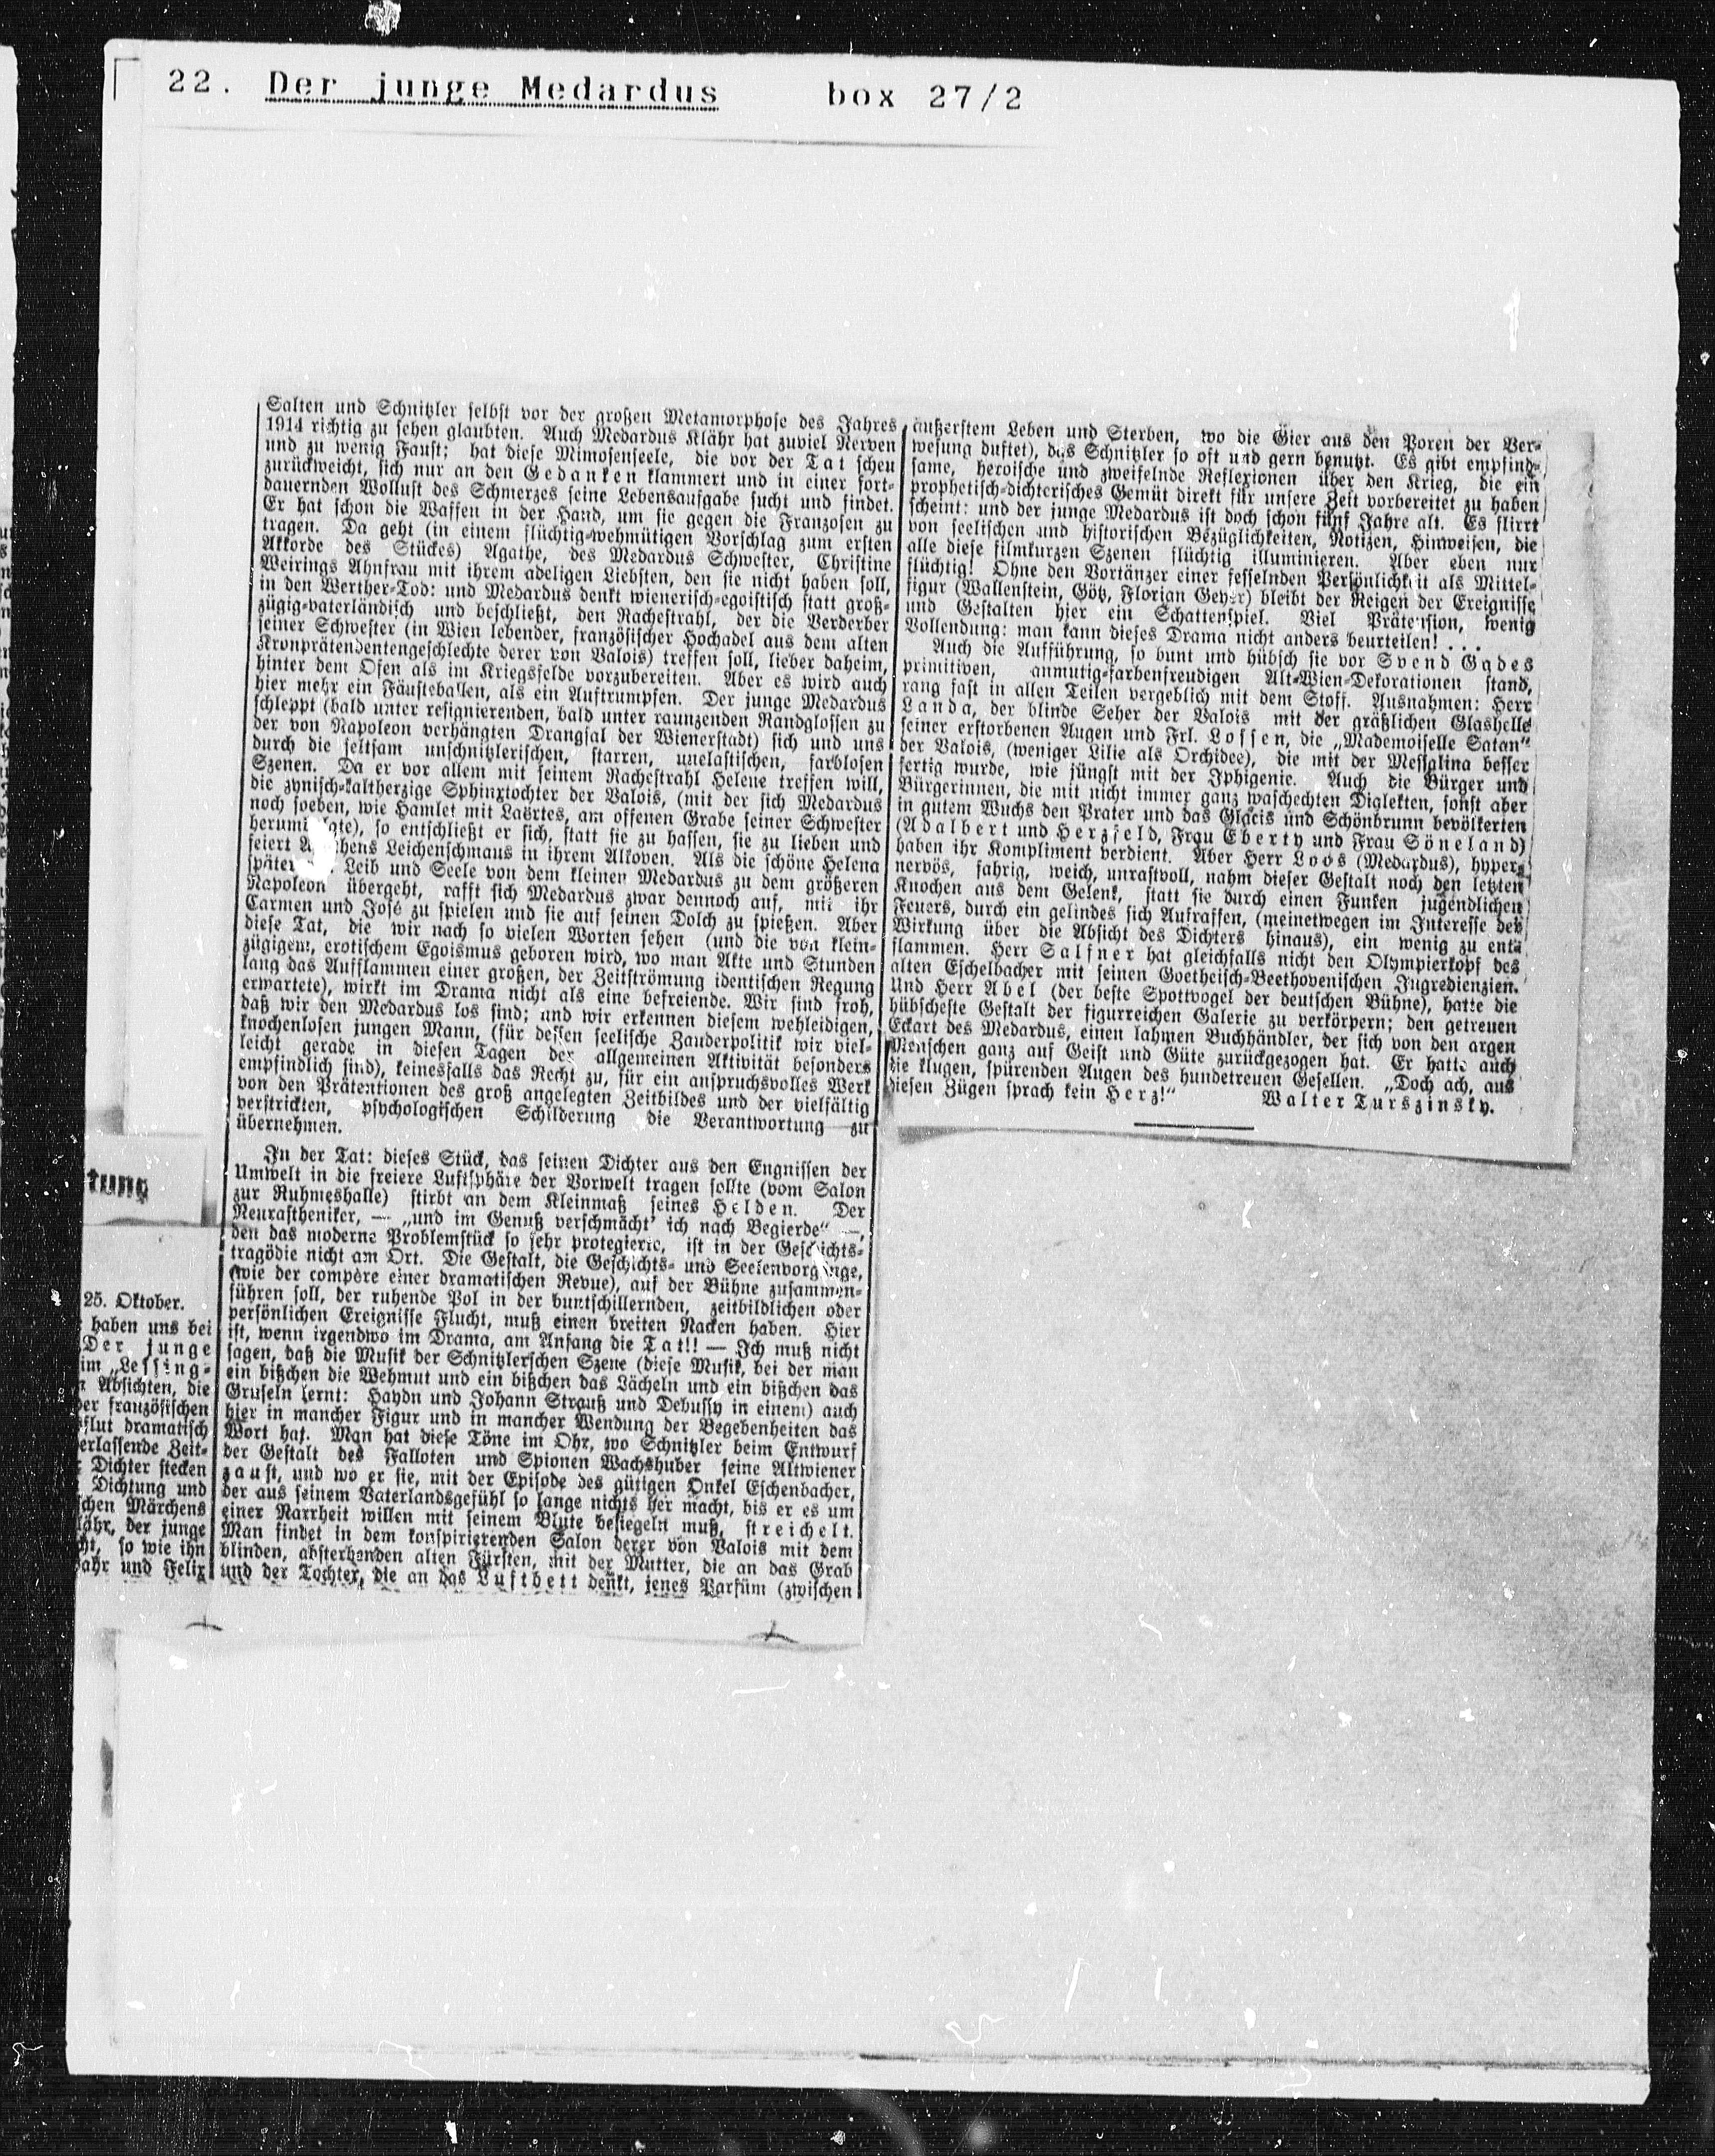 22. Der junge Medardus box 27/2
tung
25. Oktober.
haben uns bei
Der junge
im „Lessing-
Absichten, die
französischen
dramatisch
Zeit-
Dichter stecken
Dichtung und
Märchens
der junge
so wie ihn
und Felix
Salten und Schnitzler selbst vor der großen Metamorphose des Jahres
1914 richtig zu sehen glaubten. Auch Medardus Klähr hat zuviel Nerven
und zu wenig Faust; hat diese Mimosenseele, die vor der Tat scheu
zurückweicht, sich nur an den Gedanken klammert und in einer fort-
dauernden Wollust des Schmerzes seine Lebensaufgabe sucht und findet.
Er hat schon die Waffen in der Hand, um sie gegen die Franzosen zu
tragen. Da geht (in einem flüchtig-wehmütigen Vorschlag zum ersten
Akkorde des Stückes) Agathe, des Medardus Schwester, Christine
Weirings Ahnfrau mit ihrem adeligen Liebsten, den sie nicht haben soll,
in den Werther-Tod: und Medardus denkt wienerisch-egoistisch statt groß-
zügig-vaterländisch und beschließt, den Rachestrahl, der die Verderber
seiner Schwester (in Wien lebender, französischer Hochadel aus dem alten
Kronprätendentengeschlechte derer von Valois) treffen soll, lieber daheim,
hinter dem Ofen als im Kriegsfelde vorzubereiten. Aber es wird auch
hier mehr ein Fäusteballen, als ein Auftrumpfen. Der junge Medardus
schleppt (bald unter resignierenden, bald unter raunzenden Randglossen zu
der von Napoleon verhängten Drangsal der Wienerstadt) sich und uns
durch die seltsam unschnitzlerischen, starren, unelastischen, farblosen
Szenen. Da er vor allem mit seinem Rachestrahl Helene treffen will,
die zynisch-kaltherzige Sphinxtochter der Valois, (mit der sich Medardus
noch soeben, wie Hamlet mit Laërtes, am offenen Grabe seiner Schwester
so entschließt er sich, statt sie zu hassen, sie zu lieben und
feiert Leichenschmaus in ihrem Alkoven. Als die schöne Helena
später Leib und Seele von dem kleinen Medardus zu dem größeren
Napoleon übergeht, rafft sich Medardus zwar dennoch auf, mit ihr
Carmen und José zu spielen und sie auf seinen Dolch zu spießen. Aber
diese Tat, die wir nach so vielen Worten sehen (und die von klein-
zügigem, erotischem Egoismus geboren wird, wo man Akte und Stunden
lang das Aufflammen einer großen, der Zeitströmung identischen Regung
erwartete), wirkt im Drama nicht als eine befreiende. Wir sind froh,
daß wir den Medardus los sind; und wir erkennen diesem wehleidigen,
knochenlosen jungen Mann, (für dessen seelische Zauderpolitik wir viel-
leicht gerade in diesen Tagen der allgemeinen Aktivität besonders
empfindlich sind), keinesfalls das Recht zu, für ein anspruchsvolles Werk
von den Prätentionen des groß angelegten Zeitbildes und der vielfältig
verstrickten, psychologischen Schilderung die Verantwortung zu
übernehmen.
In der Tat: dieses Stück, das seinen Dichter aus den Engnissen der
Umwelt in die freiere Luftsphäre der Vorwelt tragen sollte (vom Salon
zur Ruhmeshalle) stirbt an dem Kleinmaß seines Helden. Der
Neurastheniker, — „und im Genuß verschmacht' ich nach Begierde“ —,
den das moderne Problemstück so sehr protegierte, ist in der Geschichts-
tragödie nicht am Ort. Die Gestalt, die Geschichts- und Seelenvorgänge,
(wie der compère einer dramatischen Revue), auf der Bühne zusammen-
führen soll, der ruhende Pol in der buntschillernden, zeitbildlichen oder
persönlichen Ereignisse Flucht, muß einen breiten Nacken haben. Hier
ist, wenn irgendwo im Drama, am Anfang die Tat!! — Ich muß nicht
sagen, daß die Musik der Schnitzlerschen Szene (diese Musik, bei der man
ein bißchen die Wehmut und ein bißchen das Lächeln und ein bißchen das
Gruseln lernt: Haydn und Johann Strauß und Debussy in einem) auch
hier in mancher Figur und in mancher Wendung der Begebenheiten das
Wort hat. Man hat diese Töne im Ohr, wo Schnitzler beim Entwurf
der Gestalt des Falloten und Spionen Wachshuber seine Altwiener
zaust, und wo er sie, mit der Episode des gütigen Onkel Eschenbacher,
der aus seinem Vaterlandsgefühl so lange nichts her macht, bis er es um
einer Narrheit willen mit seinem Blute besiegeln muß, streichelt.
Man findet in dem konspirierenden Salon derer von Valois mit dem
blinden, absterbenden alten Fürsten, mit der Mutter, die an das Grab
und der Tochter, die an das Luftbett denkt, jenes Parfüm (zwischen
äußerstem Leben und Sterben, wo die Gier aus den Poren der Ver-
wesung duftet), das Schnitzler so oft und gern benutzt. Es gibt empfind-
same, heroische und zweifelnde Reflexionen über den Krieg, die ein
prophetisch-dichterisches Gemüt direkt für unsere Zeit vorbereitet zu haben
scheint: und der junge Medardus ist doch schon fünf Jahre alt. Es flirrt
von seelischen und historischen Bezüglichkeiten, Notizen, Hinweisen, die
alle diese filmkurzen Szenen flüchtig illuminieren. Aber eben nur
flüchtig! Ohne den Vortänzer einer fesselnden Persönlichkeit als Mittel-
figur (Wallenstein, Götz, Florian Geyer) bleibt der Reigen der Ereignisse
und Gestalten hier ein Schattenspiel. Viel Prätension, wenig
Vollendung: man kann dieses Drama nicht anders beurteilen! . . .
Auch die Aufführung, so bunt und hübsch sie vor Svend Gades
primitiven, anmutig-farbenfreudigen Alt-Wien-Dekorationen stand,
rang fast in allen Teilen vergeblich mit dem Stoff. Ausnahmen: Herr
Landa, der blinde Seher der Valois mit der gräßlichen Glashelle
seiner erstorbenen Augen und Frl. Lossen, die „Mademoiselle Satan“
der Valois, (weniger Lilie als Orchidee), die mit der Messalina besser
fertig wurde, wie jüngst mit der Iphigenie. Auch die Bürger und
Bürgerinnen, die mit nicht immer ganz waschechten Dialekten, sonst aber
in gutem Wuchs den Prater und das Glacis und Schönbrunn bevölkerten
(Adalbert und Herzfeld, Frau Eberty und Frau Söneland)
haben ihr Kompliment verdient. Aber Herr Loos (Medardus), hyper-
nervös, fahrig, weich, unrastvoll, nahm dieser Gestalt noch den letzten
Knochen aus dem Gelenk, statt sie durch einen Funken jugendlichen
Feuers, durch ein gelindes sich Aufraffen, (meinetwegen im Interesse der
Wirkung über die Absicht des Dichters hinaus), ein wenig zu ent-
flammen. Herr Salfner hat gleichfalls nicht den Olympierkopf des
alten Eschelbacher mit seinen Goetheisch-Beethovenischen Ingredienzien.
Und Herr Abel (der beste Spottvogel der deutschen Bühne), hatte die
hübscheste Gestalt der figurreichen Galerie zu verkörpern; den getreuen
Eckart des Medardus, einen lahmen Buchhändler, der sich von den argen
Menschen ganz auf Geist und Güte zurückgezogen hat. Er hatte auch
die klugen, spürenden Augen des hundetreuen Gesellen. „Doch ach, aus
diesen Zügen sprach kein Herz!“ Walter Turszinsky.